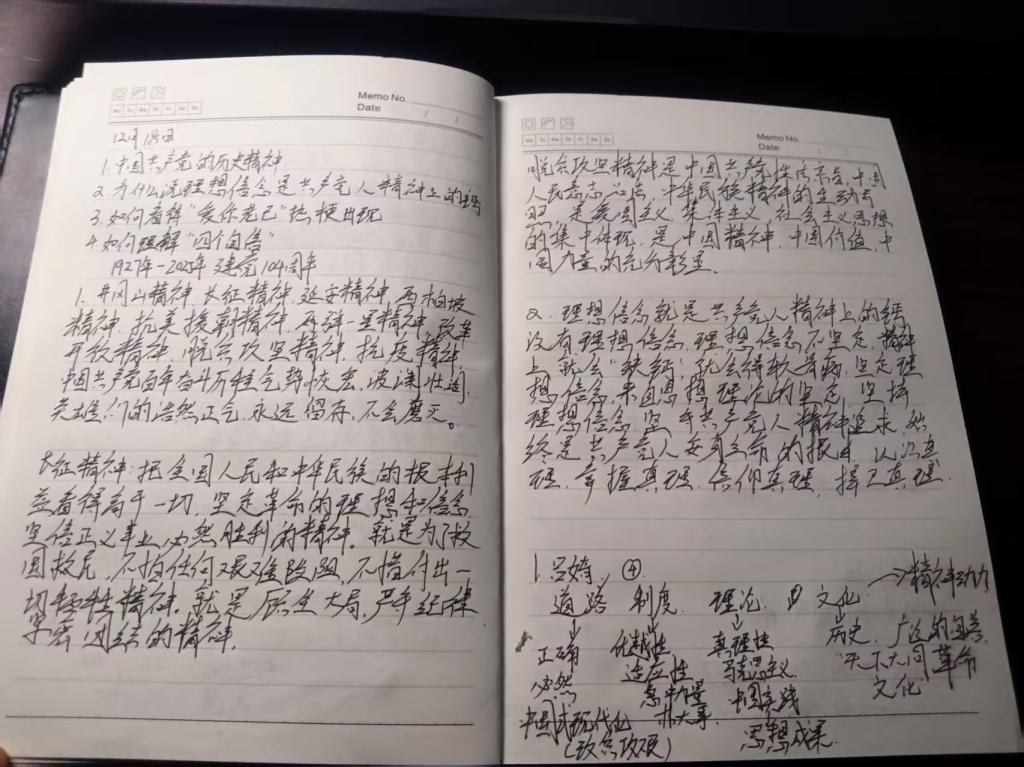 Memo No.
Date / /
Mo Tu We Th Fr Sa Su
12月18日
1.中国共产党的历史精神
2.为什么说理想信念是共产党人精神上的钙
3.如何看待"爱你老己"热梗出现
4.如何理解"四个自信"
1927年-2025年 建党104周年
1.井冈山精神,长征精神,延安精神,西柏坡
精神,抗美援朝精神,两弹一星精神,改革
开放精神,脱贫攻坚精神,抗疫精神,
中国共产党百年奋斗历程气势恢宏,波澜壮阔,
英雄们的浩然正气,永远留存,不会磨灭。
长征精神:把全国人民和中华民族的根本利
益看得高于一切,坚定革命的理想和信念,
坚信正义事业必然胜利的精神。就是为了救
国救民,不怕任何艰难险阻,不惜付出一
切牺牲精神。就是顾全大局,严守纪律
紧密团结的精神.
Memo No.
Date / /
Mo Tu We Th Fr Sa Su
脱贫攻坚精神是中国共产党性质宗旨,中国
人民意志品质,中华民族精神的生动写
照,是爱国主义,集体主义,社会主义思想
的集中体现,是中国精神,中国价值,中
国力量的充分彰显。
2.理想信念就是共产党人精神上的钙
没有理想信念,理想信念不坚定,精神
上就会"缺钙",就会得软骨病,坚定理
想信念,来自思想理论的坚定,坚持
理想信念,坚守共产党人精神追求,始
终是共产党人安身立命的根本,认识真
理,掌握真理,信仰真理,捍卫真理.
④
道路 制度 理论 文化 →精神动力
正确 优越性 真理性 历史,广泛的
必然 适应性 马克思主义 天下大同 革命
中国式现代化 集中力量 中国实践 文化
(攻点攻坚) 办大事 思想成果